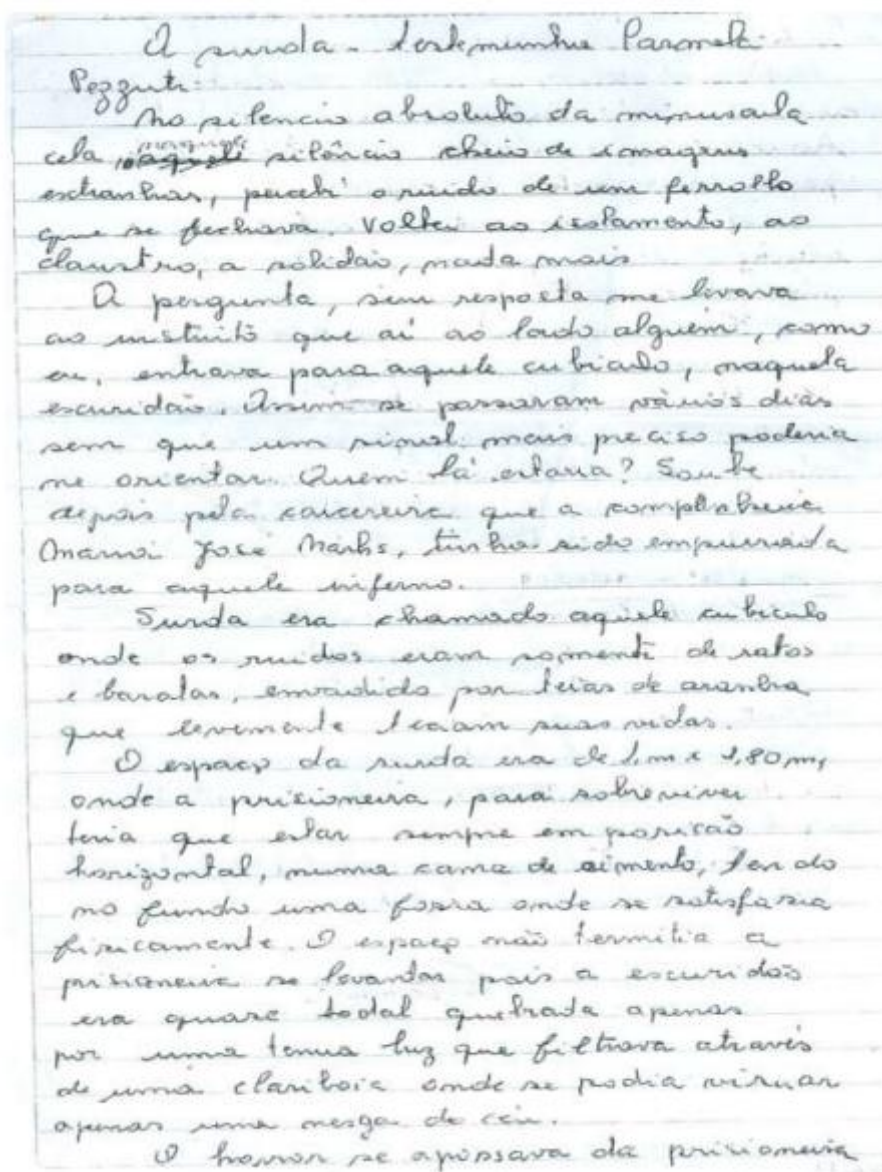 A surda - testemunho Carmela
Pezzuti:
No silencio absoluto da minuscula
cela, naquele silêncio cheio de imagens
estranhas, percebi o ruido de um ferrolho
que se fechava. Voltei ao isolamento, ao
claustro, a solidão, nada mais
A pergunta, sem resposta me levava
ao instinto que aí ao lado alguém, como
eu, entrava para aquele cubiculo, naquela
escuridão. Assim se passaram vários dias
sem que um sinal mais preciso poderia
me orientar. Quem lá estaria? Soube
depois pela carcereira que a companheira
Maria José Nahas, tinha sido empurrada
para aquele inferno.
Surda era chamado aquele cubiculo
onde os ruidos eram somente de ratos
e baratas, envadido por teias de aranha
que levemente teciam suas vidas.
O espaço da surda era de 1,m x 1,80m,
onde a prisioneira, para sobreviver
teria que estar sempre em posicão
horizontal, numa cama de cimento, tendo
no fundo uma fossa onde se satisfazia
fisicamente. O espaço não permitia a
prisioneira se levantar pois a escuridão
era quase todal quebrada apenas
por uma tenua luz que filtrava através
de uma clariboia onde se podia visuar
apenas uma nesga do céu.
O horror se apossava da prisioneira